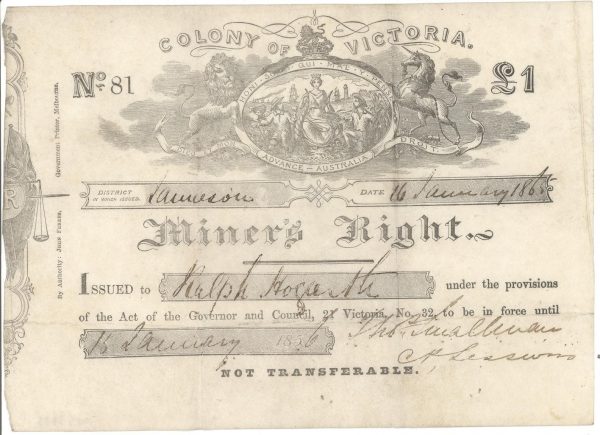 COLONY OF VICTORIA.
No. 81
£1
HONI SOI QUI MAL Y PENSE
DIEU ET MON DROIT
ADVANCE - AUSTRALIA
DISTRICT IN WHICH ISSUED. Jamieson DATE 16 January 186
Miner's Right.
ISSUED TO Ralph Hogarth under the provisions
of the Act of the Governor and Council, 21 Victoria, No. 32, to be in force until
16 January 1866
NOT TRANSFERABLE.
By Authority: John Ferres, Government Printer, Melbourne.